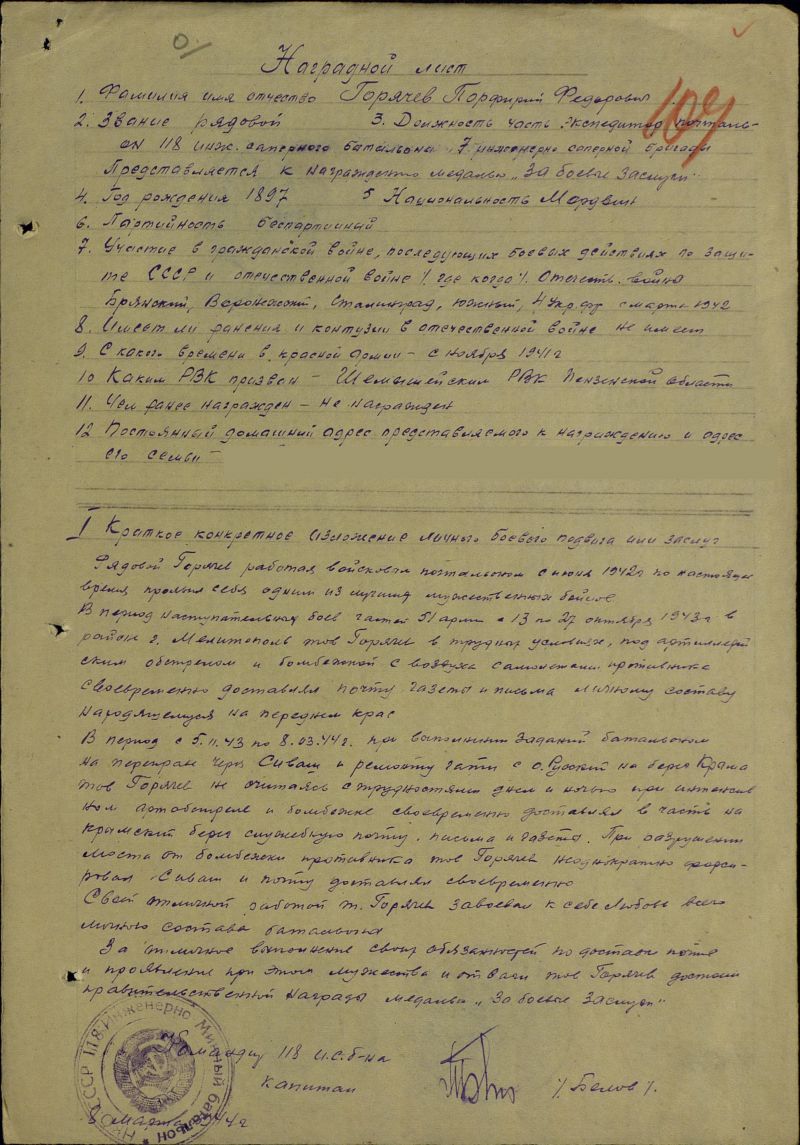 Наградной лист
1. Фамилия имя отчество Горячев Порфирий Федорович
109
2. Звание рядовой 3. Должность часть Экспедитор почталь-
он 118 инж. саперного батальона 7 инженерно саперной бригады
Представляется к награждению медалью „За боевые заслуги"
4. Год рождения 1897 5 Национальность Мордвин
6. Партийность беспартийный
7. Участие в гражданской войне, последующих боевых действиях по защи-
те СССР и отечественной войне /где когда/. Отечеств. война
Брянский, Воронежский, Сталинград, Южный, 4 Укр. фр с марта 1942
8. Имеет ли ранения и контузии в отечественной войне не имеет
9. С какого времени в красной армии - с ноября 1941 г
10 Каким РВК призван - Шемышейским РВК Пензенской области
11. Чем ранее награжден - не награжден
12 Постоянный домашний адрес представляемого к награждению и адрес
его семьи -
I Краткое конкретное изложение личного боевого подвига или заслуг
Рядовой Горячев работая войсковым почтальоном с июня 1942 г по настоящее
время проявил себя одним из лучших мужественных бойцов
В период наступательных боев частей 51 армии с 13 по 27 октября 1943 г в
районе г. Мелитополь тов Горячев в трудных условиях, под артиллерий
ским обстрелом и бомбежкой с воздуха самолетами противника
своевременно доставлял почту газеты и письма личному составу
находящемуся на переднем крае
В период с 5.11.43 по 8.03.44 г. при выполнении заданий батальоном
на переправе через Сиваш и ремонту гати с о. Русский на берег Крыма
тов Горячев не считаясь с трудностями днем и ночью при интенсив
ном артобстреле и бомбежке своевременно доставлял в часть на
крымский берег служебную почту, письма и газеты. При разрушении
моста от бомбежки противника тов Горячев неоднократно форси-
ровал Сиваш и почту доставлял своевременно
Своей отличной работой т. Горячев завоевал к себе любовь всего
личного состава батальона
За отличное выполнение своих обязанностей по доставке почты
и проявление при этом мужества и отваги тов Горячев достоин
правительственной награды медалью „За боевые заслуги"
Командир 118 и.с.б-на
капитан /Белов/.
марта 1944 г
НКО СССР 118 Инженерно Минный батальон